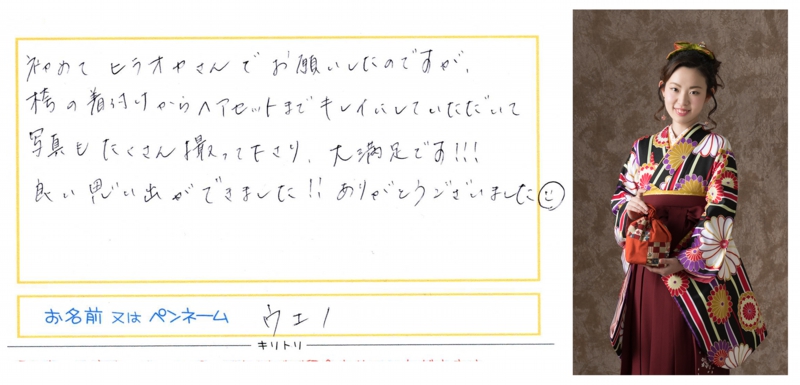 初めて ヒラオヤさんで お願いしたのですが、
袴の着付けからヘアセットまで キレイにしていただいて
写真も たくさん 撮って下さり、大満足です!!!
良い思い出ができました!! ありがとうございました
お名前 又は ペンネーム ウエノ
キリトリ